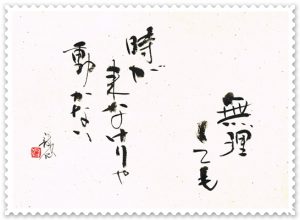 無理
しても
時が
来なけりゃ
動かない